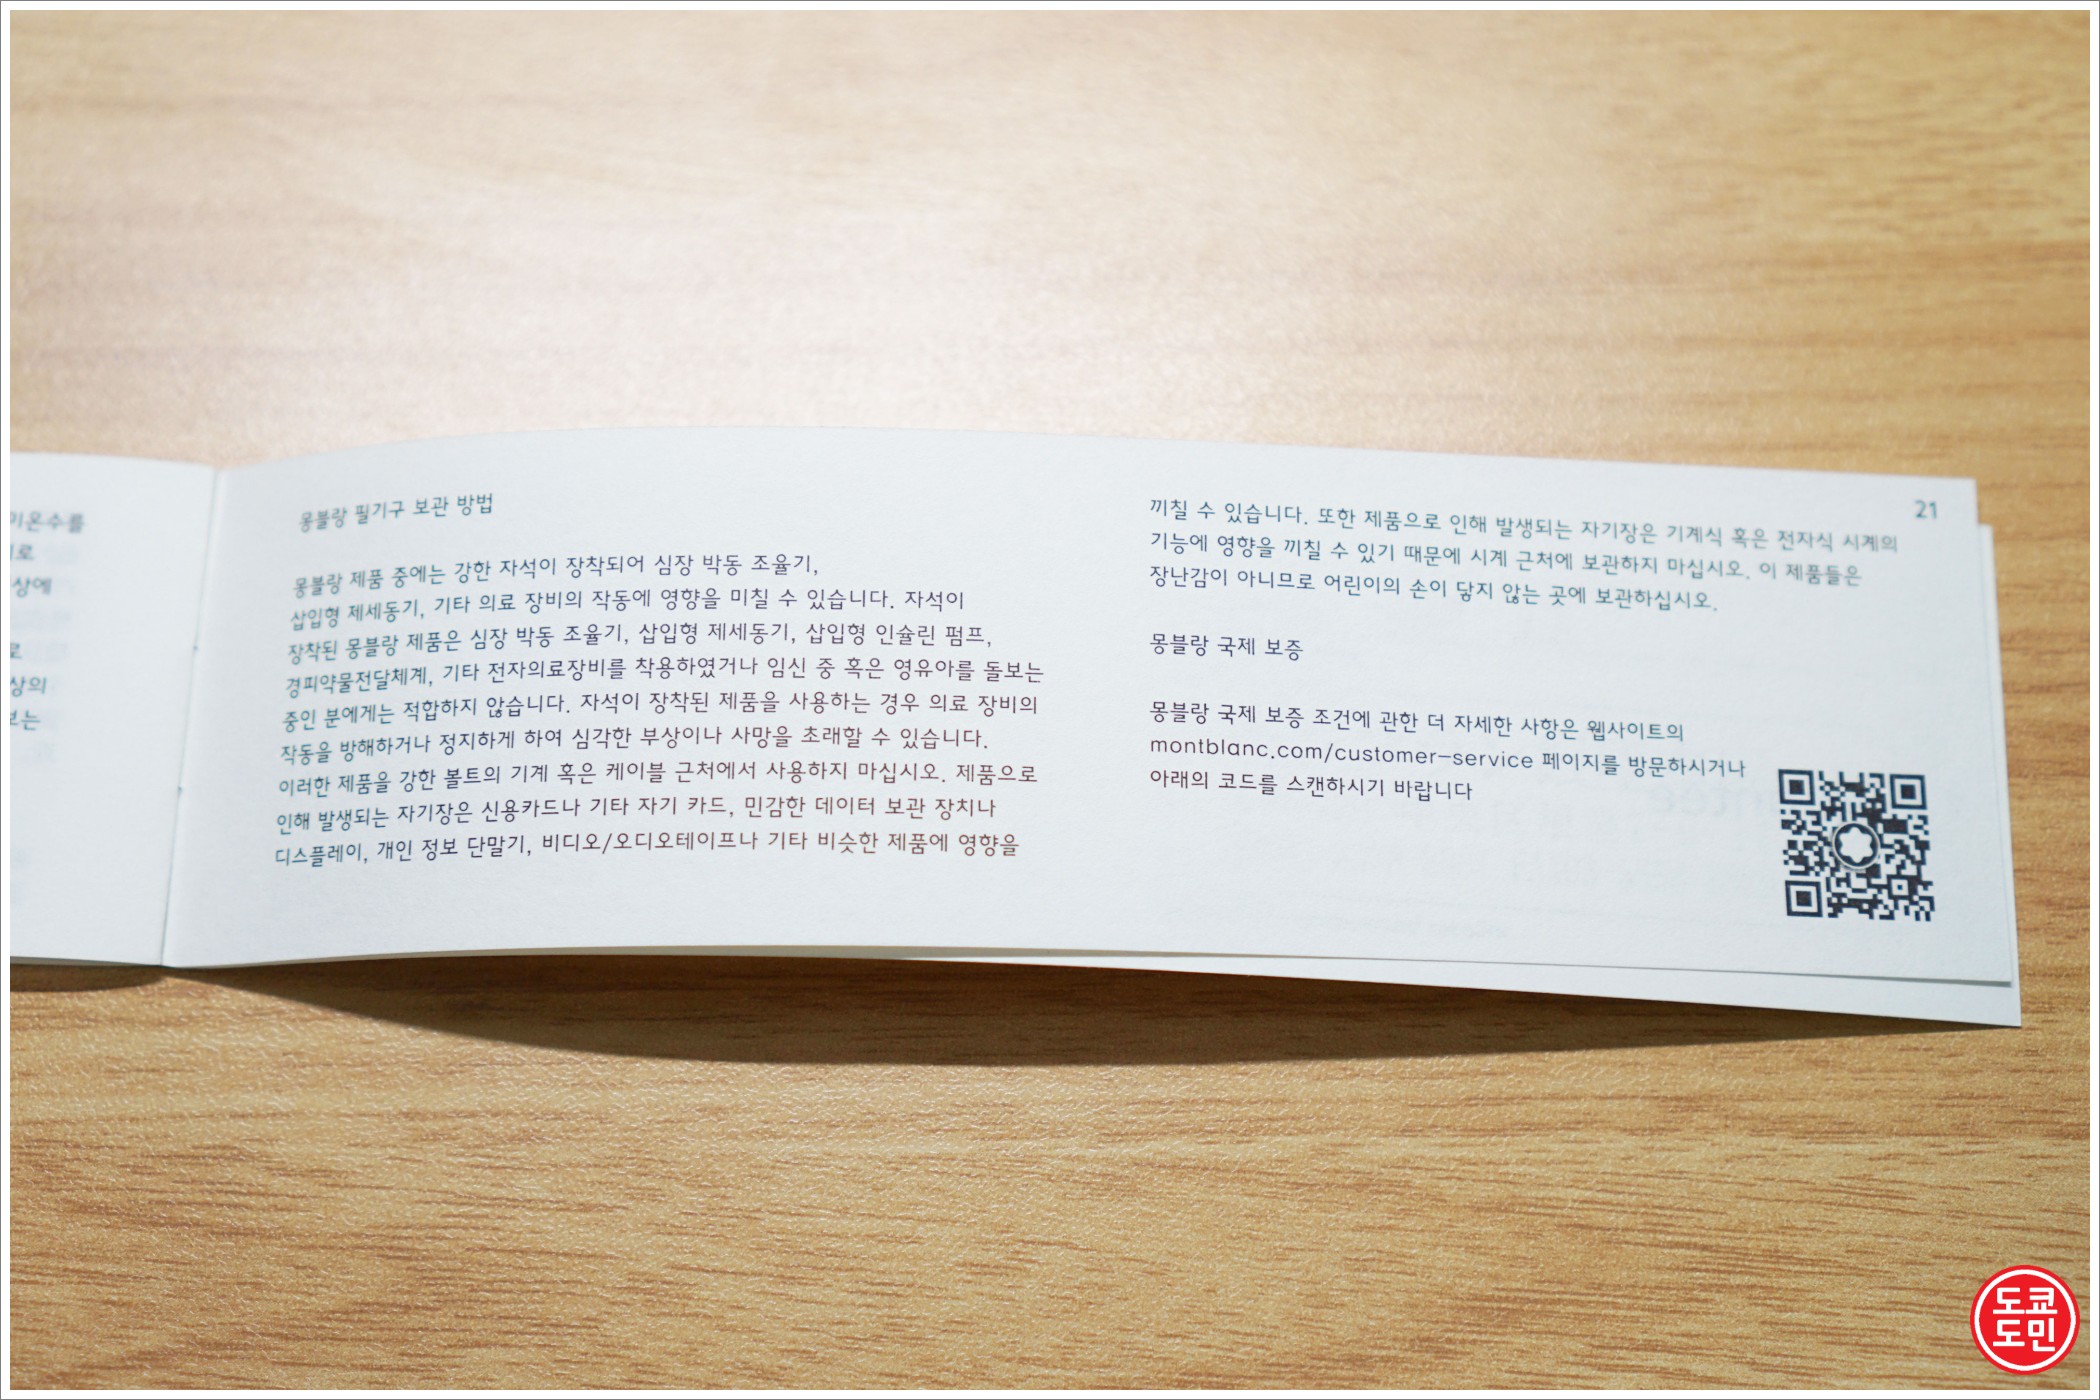 이온수를
로
상에
로
상의
보는
몽블랑 필기구 보관 방법
몽블랑 제품 중에는 강한 자석이 장착되어 심장 박동 조율기,
삽입형 제세동기, 기타 의료 장비의 작동에 영향을 미칠 수 있습니다. 자석이
장착된 몽블랑 제품은 심장 박동 조율기, 삽입형 제세동기, 삽입형 인슐린 펌프,
경피약물전달체계, 기타 전자의료장비를 착용하였거나 임신 중 혹은 영유아를 돌보는
중인 분에게는 적합하지 않습니다. 자석이 장착된 제품을 사용하는 경우 의료 장비의
작동을 방해하거나 정지하게 하여 심각한 부상이나 사망을 초래할 수 있습니다.
이러한 제품을 강한 볼트의 기계 혹은 케이블 근처에서 사용하지 마십시오. 제품으로
인해 발생되는 자기장은 신용카드나 기타 자기 카드, 민감한 데이터 보관 장치나
디스플레이, 개인 정보 단말기, 비디오/오디오테이프나 기타 비슷한 제품에 영향을
21
끼칠 수 있습니다. 또한 제품으로 인해 발생되는 자기장은 기계식 혹은 전자식 시계의
기능에 영향을 끼칠 수 있기 때문에 시계 근처에 보관하지 마십시오. 이 제품들은
장난감이 아니므로 어린이의 손이 닿지 않는 곳에 보관하십시오.
몽블랑 국제 보증
몽블랑 국제 보증 조건에 관한 더 자세한 사항은 웹사이트의
montblanc.com/customer-service 페이지를 방문하시거나
아래의 코드를 스캔하시기 바랍니다
도쿄
도민